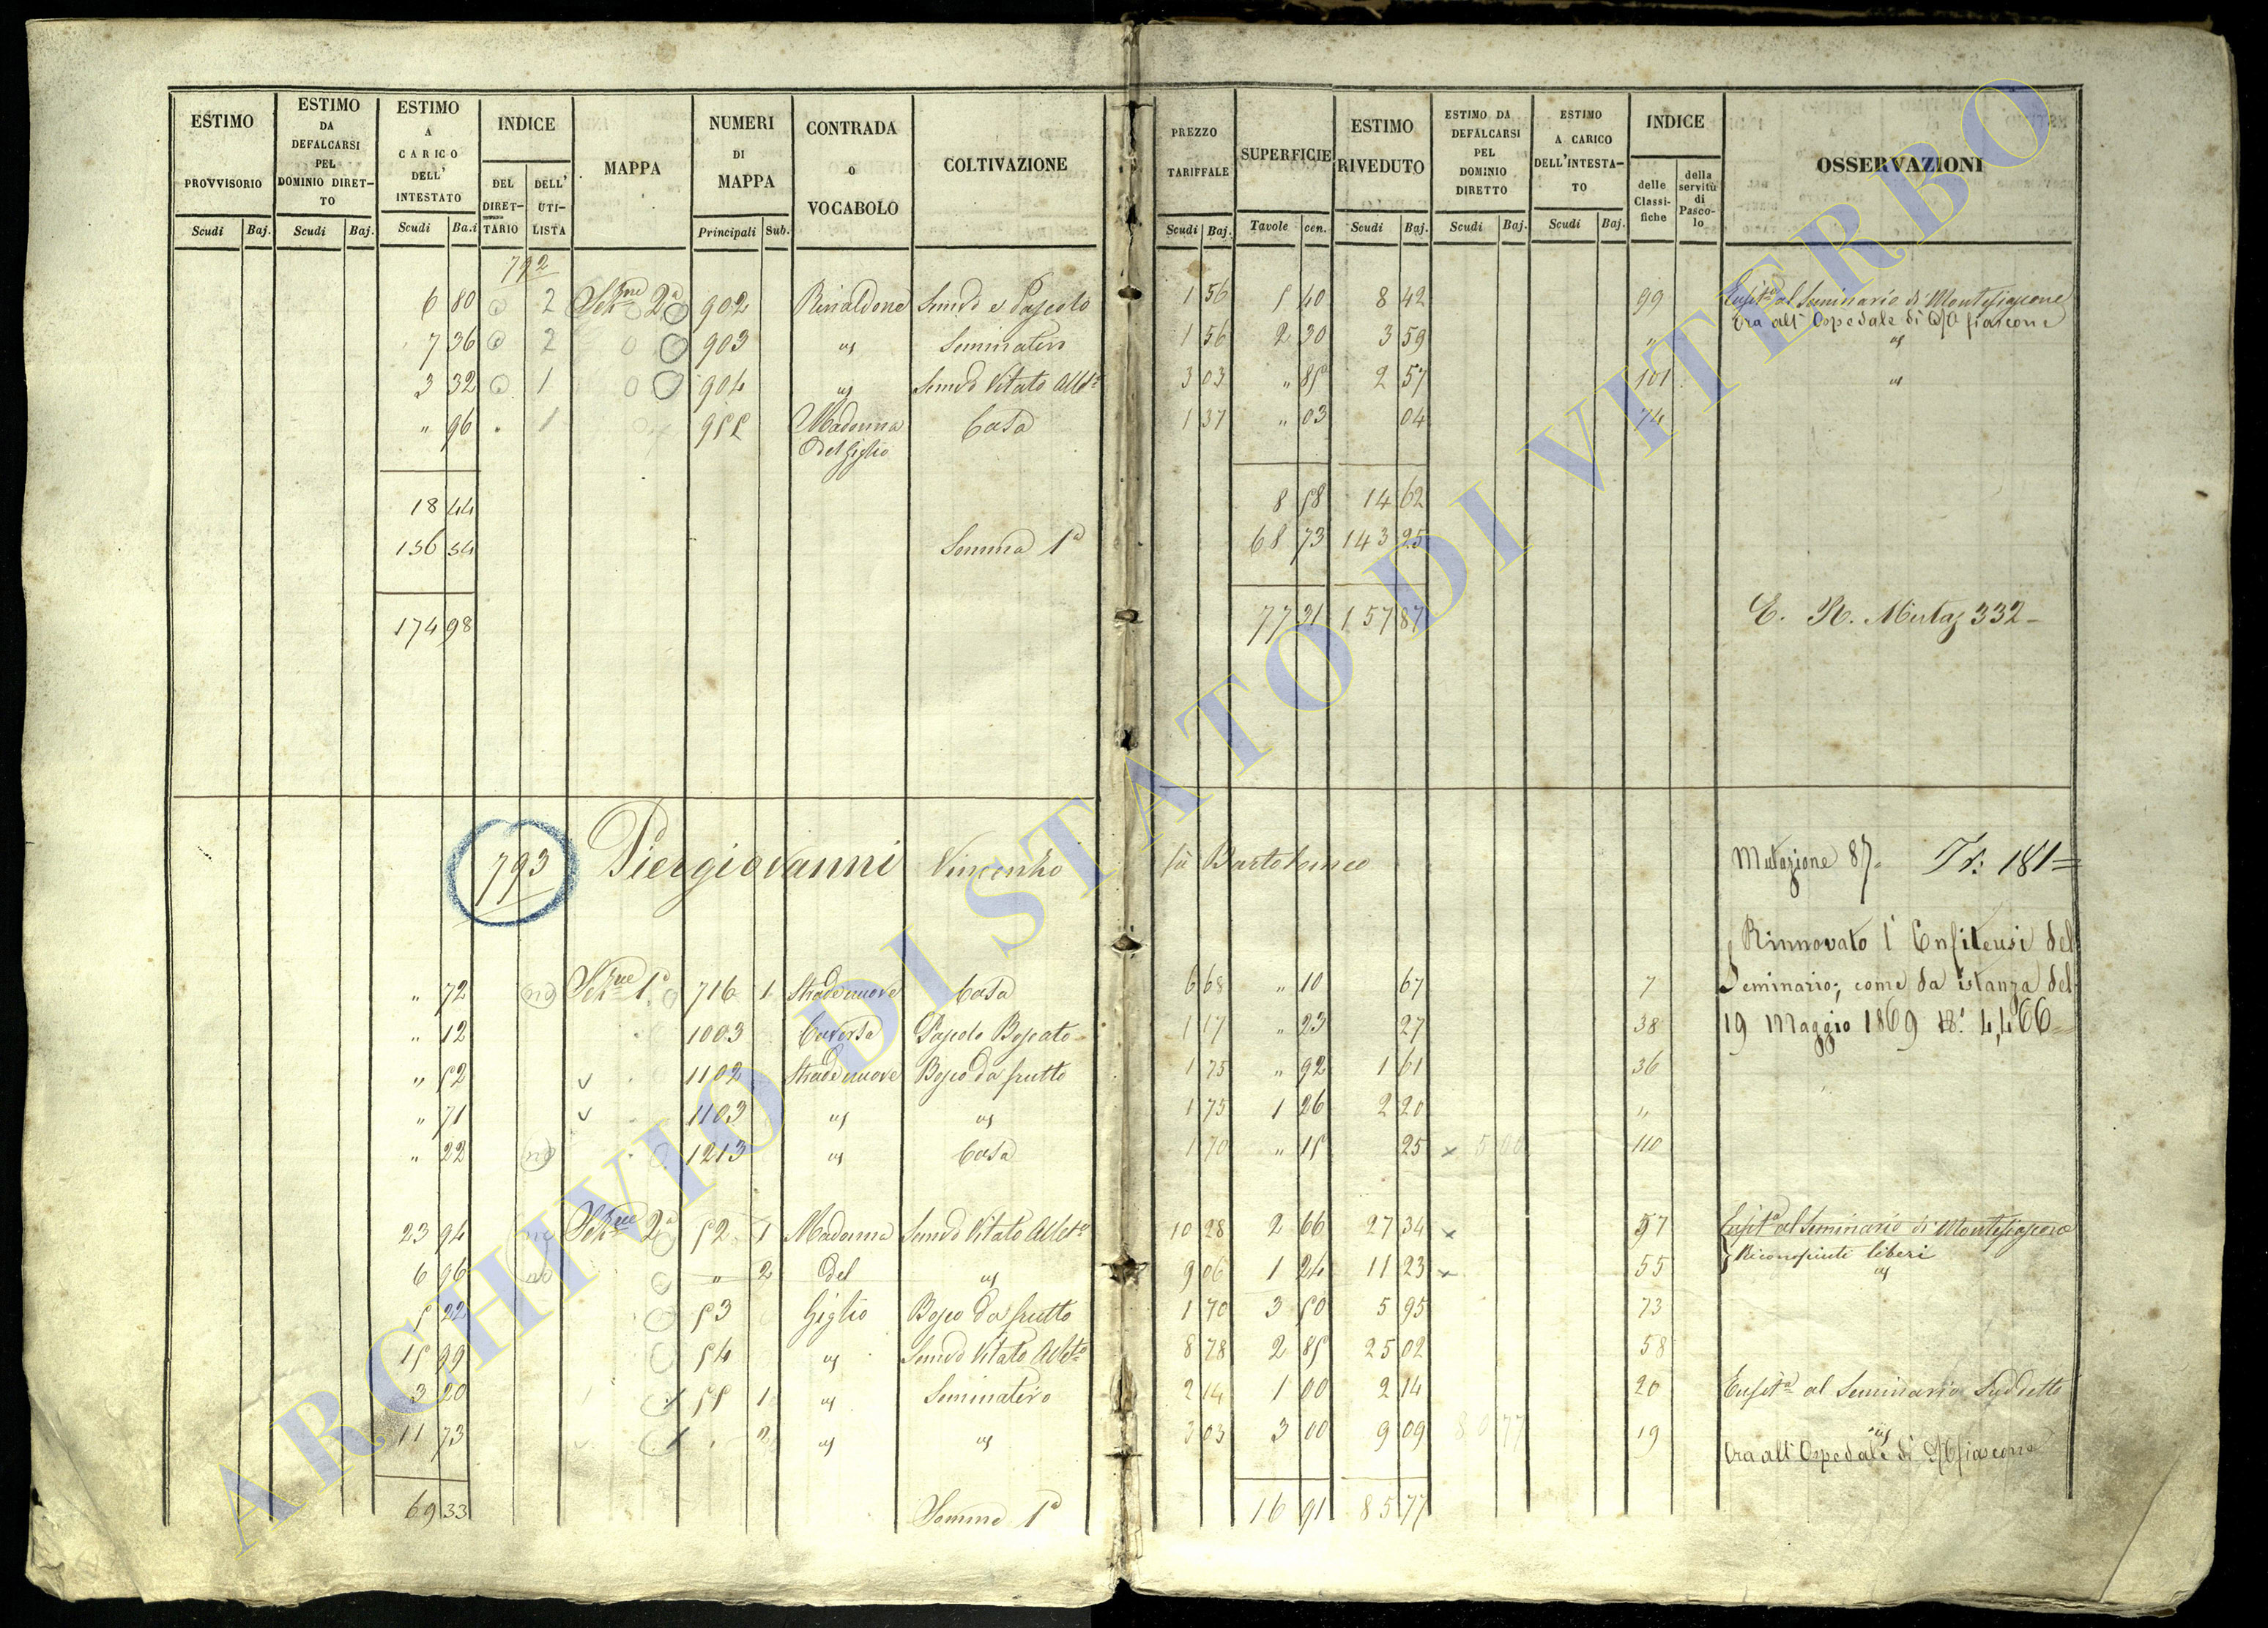 ESTIMO PROVVISORIO | ESTIMO DA DEFALCARSI PEL DOMINIO DIRET-TO | ESTIMO A CARICO DELL' INTESTATO | INDICE | MAPPA | NUMERI DI MAPPA | CONTRADA O VOCABOLO | COLTIVAZIONE | PREZZO TARIFFALE | SUPERFICIE | ESTIMO RIVEDUTO | ESTIMO DA DEFALCARSI PEL DOMINIO DIRETTO | ESTIMO A CARICO DELL'INTESTA-TO | INDICE | OSSERVAZIONI
DEL DIRET-TARIO | DELL' UTI-LISTA | delle Classi-fiche | della servitù di Pasco-lo
Scudi | Baj. | Scudi | Baj. | Scudi | Ba.i | Principali | Sub. | Scudi | Baj. | Tavole | cen. | Scudi | Baj. | Scudi | Baj. | Scudi | Baj.
792
6 80 | 2 | Sezne 2a | 902 | Rinaldone | Semvo e Pascolo | 1 56 | 5 40 | 8 42 | 99 | Enfita al Seminario di Montefiascone
Ora all' Ospedale di M fiascone
7 36 | 2 | 903 | us | Seminativo | 1 56 | 2 30 | 3 59 | " | us
3 32 | 1 | 904 | us | Semvo Vitato Albto | 3 03 | " 85 | 2 57 | 101 | us
" 96 | " | 1 | 955 | Madonna | Casa | 1 37 | " 03 | 04 | 74
del Giglio
18 44 | 8 58 | 14 62
156 54 | Somma 1a | 68 73 | 143 25
174 98 | 77 31 | 157 87 | E. R. Mutaz 332
793 | Piergiovanni Vincenzo fu Bartolomeo | Mutazione 87. | Tr: 181=
Rinnovato l' Enfiteusi del
Seminario; come da istanza del
" 72 | no | Sezne 1a | 716 | 1 | Stradenuove | Casa | 6 68 | " 10 | 67 | 7
" 12 | 1003 | Caversa | Pascolo Boscato | 1 17 | " 23 | 27 | 38 | 19 Maggio 1869 N: 4,466=
" 52 | 1102 | Stradenuove | Bosco da frutto | 1 75 | " 92 | 1 61 | 36
" 71 | 1103 | us | us | 1 75 | 1 26 | 2 20 | "
" 22 | no | 1213 | us | Casa | 1 70 | " 15 | 25 | x | 5 00 | 110
23 94 | no | Sezne 2a | 52 | 1 | Madonna | Semvo Vitato Albto | 10 28 | 2 66 | 27 34 | x | 57 | Enfita al Seminario di Montefiascone
Riconosciute liberi
6 96 | no | " | 2 | del | us | 9 06 | 1 24 | 11 23 | x | 55 | us
5 22 | 53 | Giglio | Bosco da frutto | 1 70 | 3 50 | 5 95 | 73
15 99 | 54 | us | Semvo Vitato Albto | 8 78 | 2 85 | 25 02 | 58
3 20 | 55 | 1 | us | Seminativo | 2 14 | 1 00 | 2 14 | 20 | Enfita al Seminario Suddetto
11 73 | " | 2 | us | us | 3 03 | 3 00 | 9 09 | 80 77 | 19 | us
Ora all' Ospedale di M fiascone
69 33 | Somma 1a | 16 91 | 85 77
ARCHIVIO DI STATO DI VITERBO